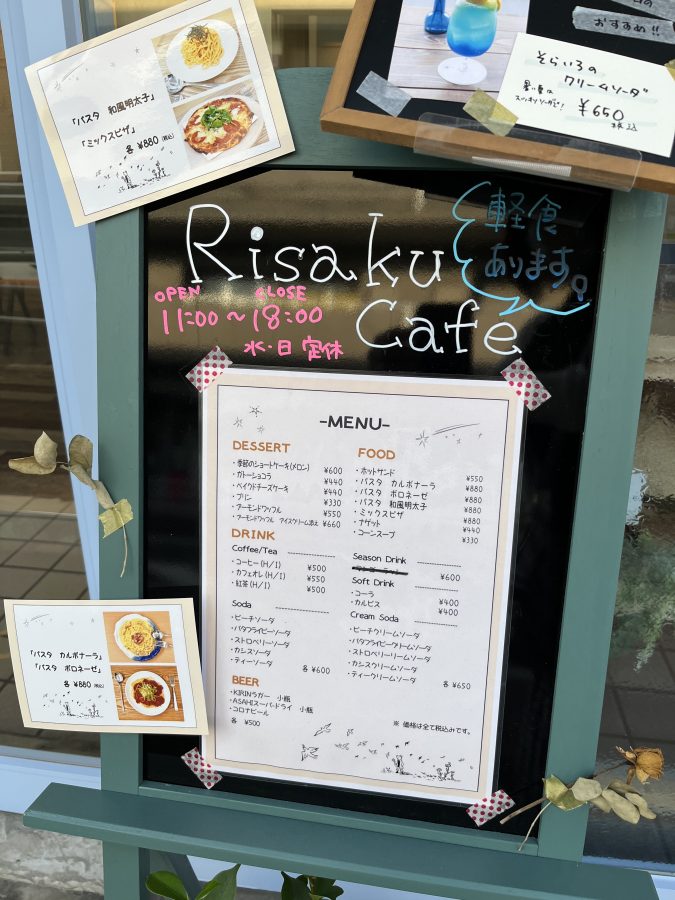 「パスタ 和風明太子」
「ミックスピザ」
各 ¥880(税込)
おすすめ!!
そらいろの
クリームソーダ
¥650
税込
軽食
あります。
Risaku
Cafe
OPEN CLOSE
11:00~18:00
水・日 定休
-MENU-
DESSERT
・季節のショートケーキ(メロン) ¥600
・ガトーショコラ ¥440
・ベイクドチーズケーキ ¥440
・プリン ¥330
・アーモンドワッフル ¥550
・アーモンドワッフル アイスクリーム添え ¥660
FOOD
・ホットサンド ¥550
・パスタ カルボナーラ ¥880
・パスタ ボロネーゼ ¥880
・パスタ 和風明太子 ¥880
・ミックスピザ ¥880
・ナゲット ¥440
・コーンスープ ¥330
DRINK
Coffee/Tea
・コーヒー(H/I) ¥500
・カフェオレ(H/I) ¥550
・紅茶(H/I) ¥500
Soda
・ピーチソーダ
・バタフライピーソーダ
・ストロベリーソーダ
・カシスソーダ
・ティーソーダ
各 ¥600
BEER
・KIRINラガー 小瓶
・ASAHIスーパードライ 小瓶
・コロナビール
各 ¥500
Season Drink
¥600
Soft Drink
・コーラ ¥400
・カルピス ¥400
Cream Soda
・ピーチクリームソーダ
・バタフライピークリームソーダ
・ストロベリーリームソーダ
・カシスクリームソーダ
・ティークリームソーダ
各 ¥650
※ 価格は全て税込みです。
「パスタ カルボナーラ」
「パスタ ボロネーゼ」
各 ¥880(税込)